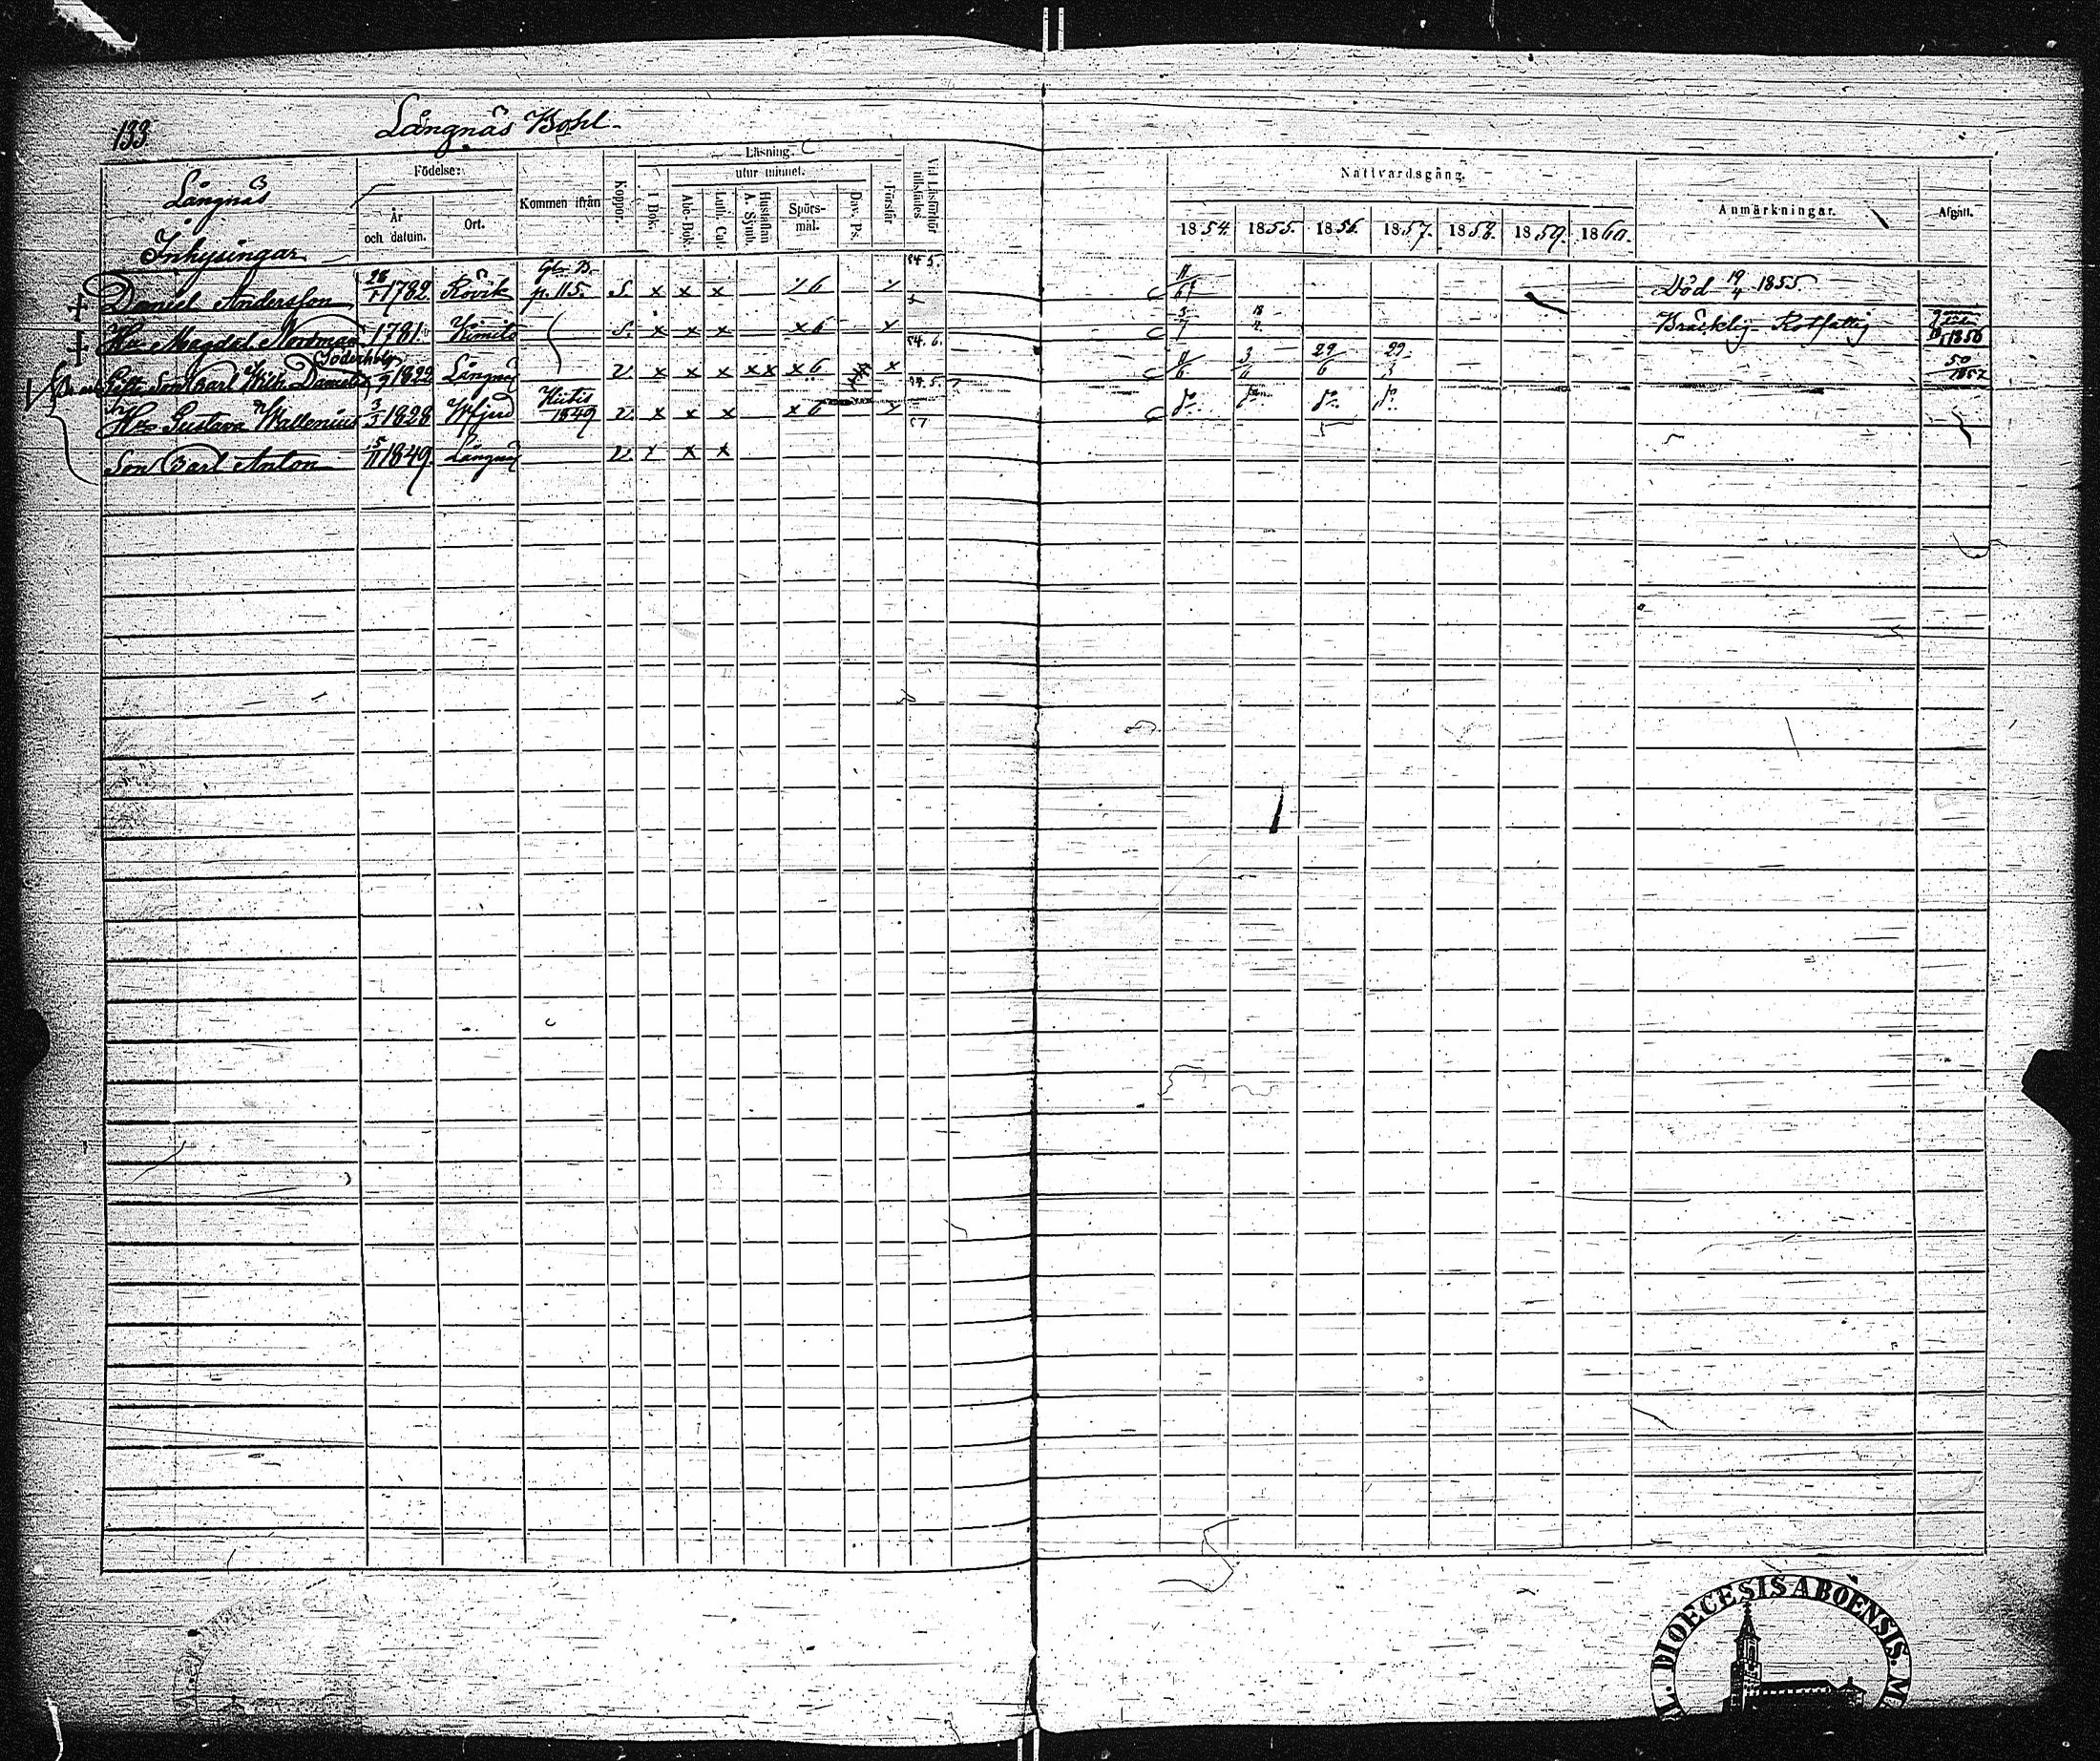 133.
Långnäs Bohl
Långnäs
Inhysingar
Födelse:
År och datum.
Ort.
Kommen ifrån
Koppor.
Läsning.
utur minnet.
I Bok.
Abc-Bok.
Luth. Cat.
Hustaflan A. Symb.
Spörs-mål.
Dav. Ps.
Förstår
Vid Läsförhör tillstädes
Nattvardsgång.
1854. 1855. 1856. 1857. 1858. 1859. 1860.
Anmärkningar.
Afgått.
Daniel Andersson 28/1 1782 Rövik Gl. B. p. 115. S. x x x x 6 x 54 5. Död 19/4 1855
Hu Magdal Nordman 1781 Kimito S. x x x x 6 x Bräcklig Rotfattig 1856
Söderholm
Gifte Son Carl Wilh. 1822 Långnäs V. x x x x x x 6 x x 54. 6. 11/6 3/6 29/6 29/3 50/1857
Hu Gustava Wallenius 3/3 1828 Hiitis 1849 V. x x x x 6 x 54. 5. 57
Son Carl Anton 15/11 1849. Långnäs V. x x x
DIOECESIS ABOENSIS.